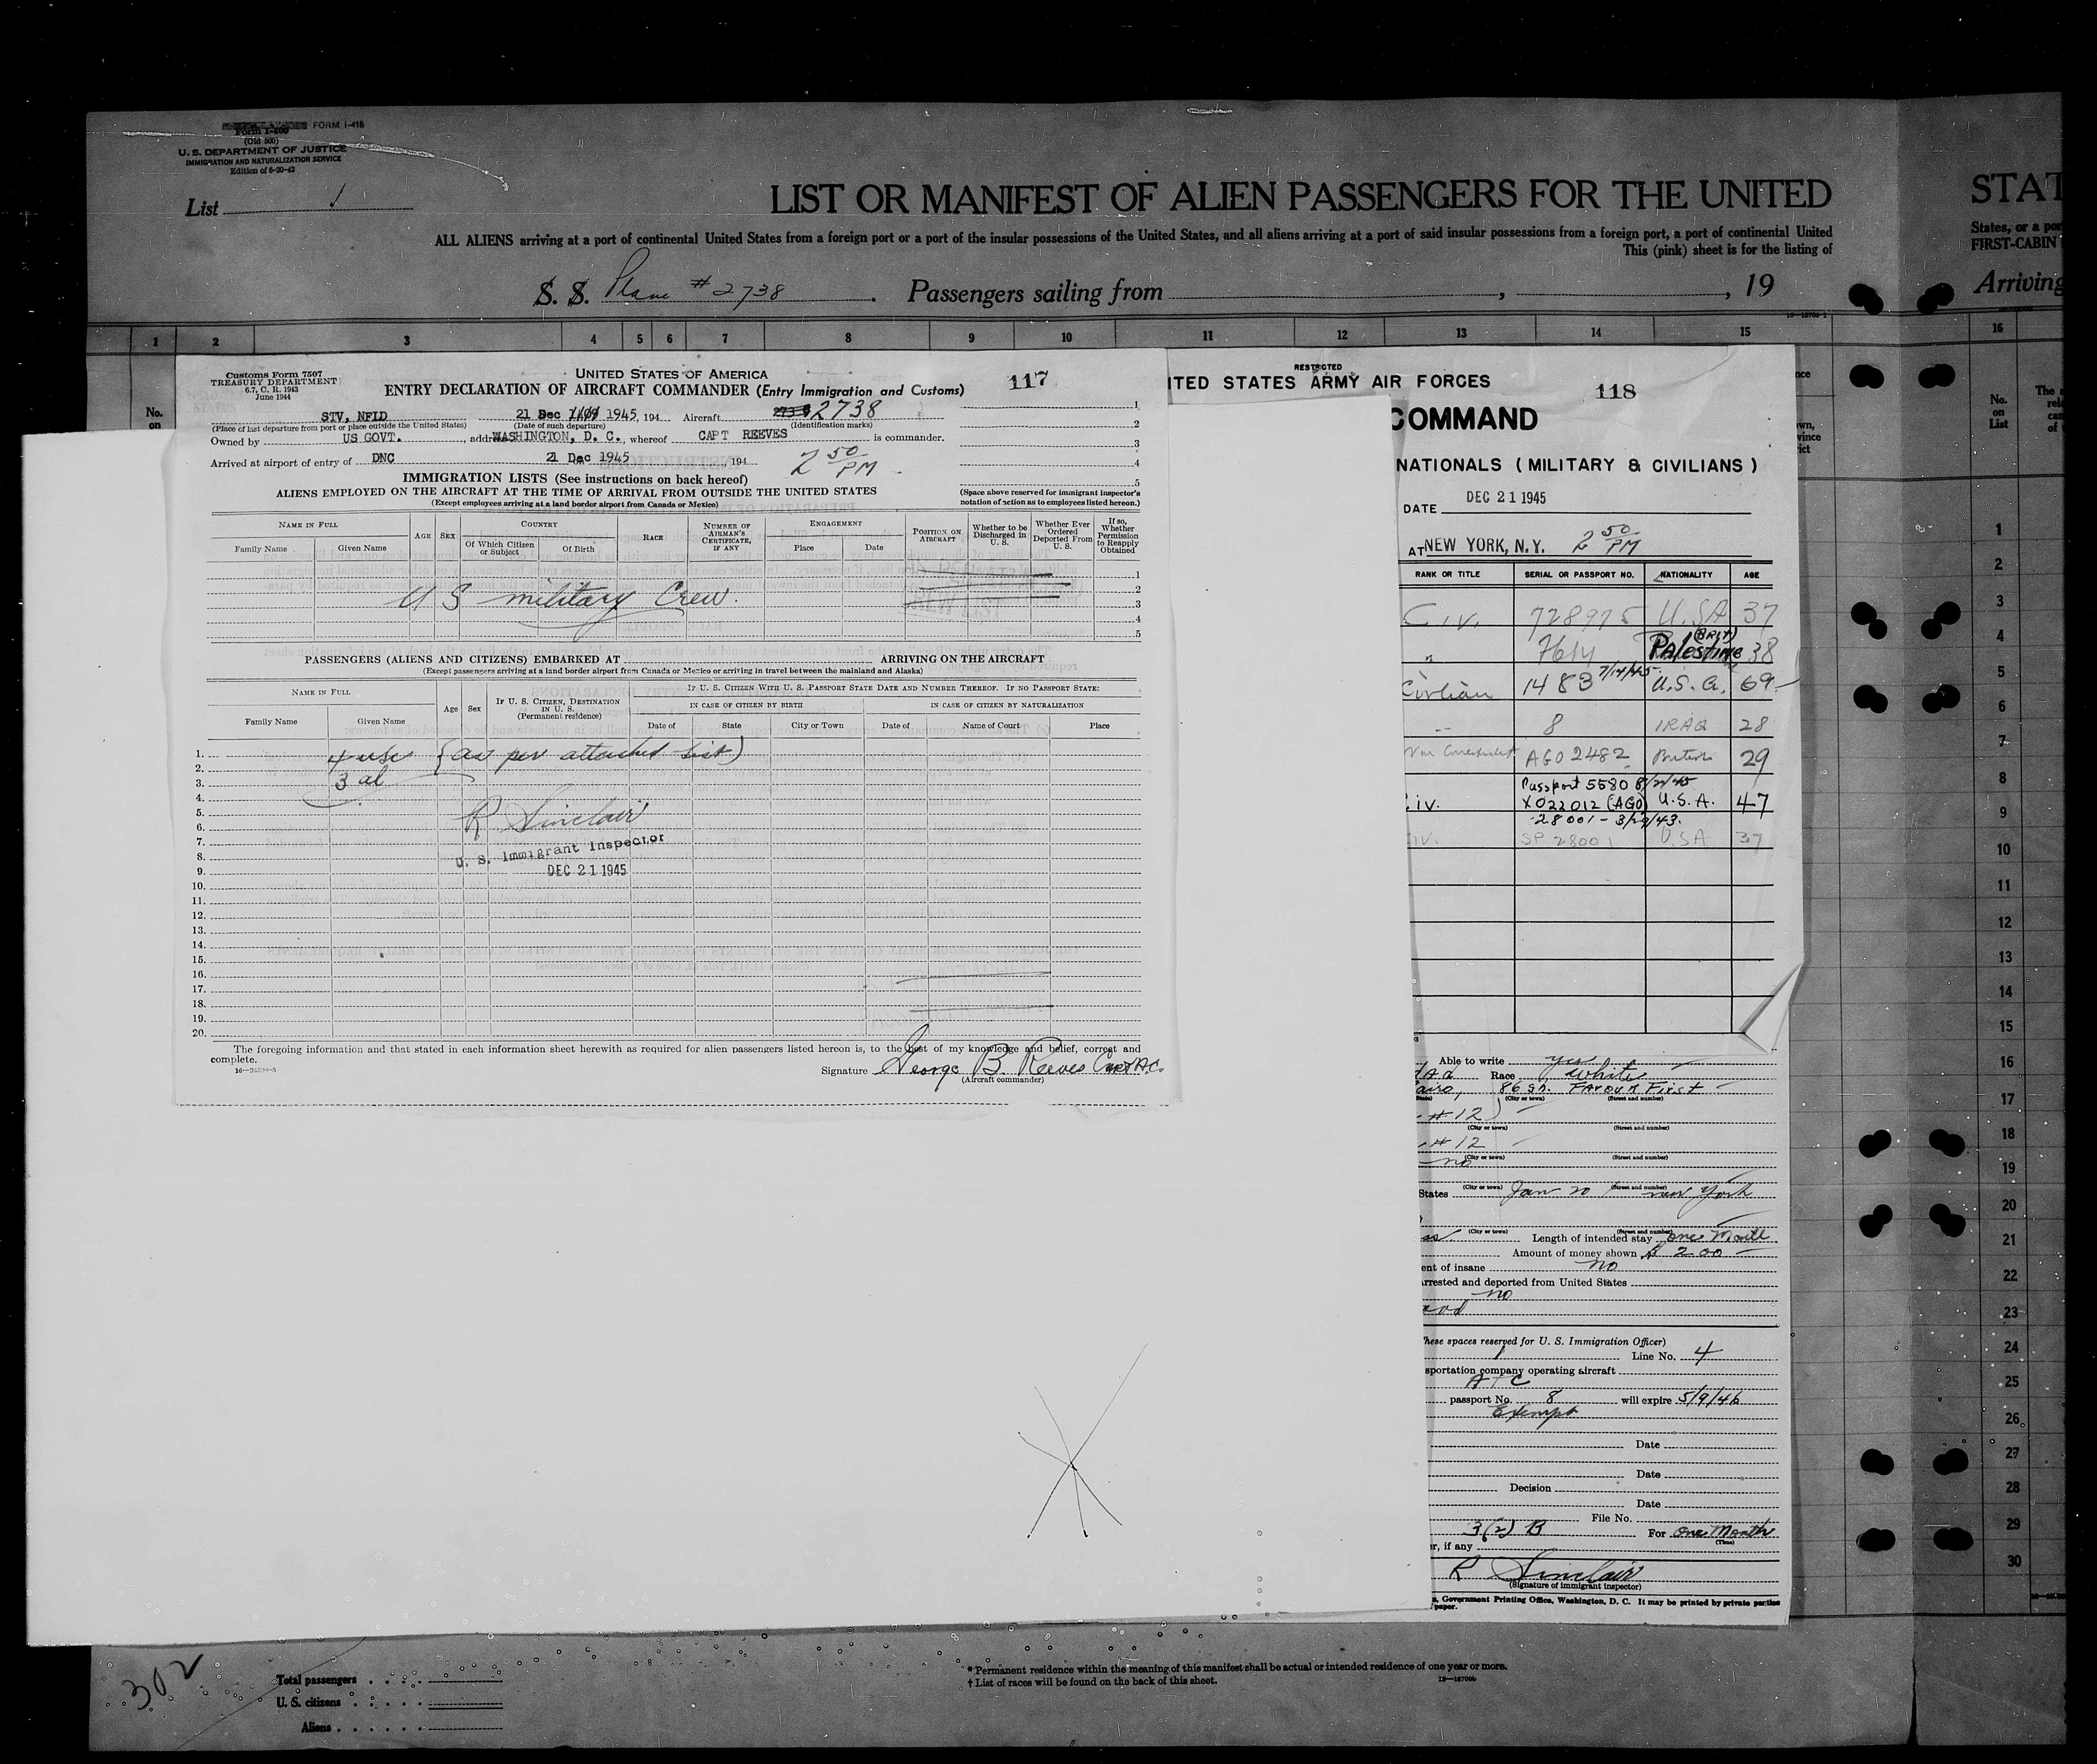 FORM I-415
Form I-400
(Old 500)
U. S. DEPARTMENT OF JUSTICE
IMMIGRATION AND NATURALIZATION SERVICE
Edition of 6-20-42
List 1
LIST OR MANIFEST OF ALIEN PASSENGERS FOR THE UNITED
ALL ALIENS arriving at a port of continental United States from a foreign port or a port of the insular possessions of the United States, and all aliens arriving at a port of said insular possessions from a foreign port, a port of continental United
This (pink) sheet is for the listing of
S. S. Plane # 2738 . Passengers sailing from , , 19
1 2 3 4 5 6 7 8 9 10 11 12 13 14 15
No.
on
STAT
States, or a por
FIRST-CABIN
Arriving
16
No.
on
List
The
Customs Form 7507
TREASURY DEPARTMENT
6.7, C. R. 1943
June 1944
UNITED STATES OF AMERICA
ENTRY DECLARATION OF AIRCRAFT COMMANDER (Entry Immigration and Customs)
117
STV, NFLD 21 Dec 1945, 194 Aircraft 2738
(Place of last departure from port or place outside the United States) (Date of such departure) (Identification marks)
Owned by US GOVT. , addr WASHINGTON, D. C., whereof CAPT REEVES is commander.
Arrived at airport of entry of DNC 21 Dec 1945 , 194 2 50 PM
1
2
3
4
5
IMMIGRATION LISTS (See instructions on back hereof)
ALIENS EMPLOYED ON THE AIRCRAFT AT THE TIME OF ARRIVAL FROM OUTSIDE THE UNITED STATES
(Except employees arriving at a land border airport from Canada or Mexico)
(Space above reserved for immigrant inspector's
notation of action as to employees listed hereon.)
NAME IN FULL AGE SEX COUNTRY RACE NUMBER OF AIRMAN'S CERTIFICATE, IF ANY ENGAGEMENT POSITION ON AIRCRAFT Whether to be Discharged in U. S. Whether Ever Ordered Deported From U. S. If so, Whether Permission to Reapply Obtained
Family Name Given Name Of Which Citizen or Subject Of Birth Place Date
1
2
U S military Crew. 3
4
5
PASSENGERS (ALIENS AND CITIZENS) EMBARKED AT ARRIVING ON THE AIRCRAFT
(Except passengers arriving at a land border airport from Canada or Mexico or arriving in travel between the mainland and Alaska)
NAME IN FULL Age Sex IF U. S. CITIZEN, DESTINATION IN U. S. (Permanent residence) IF U. S. CITIZEN WITH U. S. PASSPORT STATE DATE AND NUMBER THEREOF. IF NO PASSPORT STATE:
IN CASE OF CITIZEN BY BIRTH IN CASE OF CITIZEN BY NATURALIZATION
Family Name Given Name Date of State City or Town Date of Name of Court Place
1. 4 usc (as per attached list)
2.
3. 3 al
4.
5.
6. R Sinclair
7.
8. U. S. Immigrant Inspector
9. DEC 21 1945
10.
11.
12.
13.
14.
15.
16.
17.
18.
19.
20.
The foregoing information and that stated in each information sheet herewith as required for alien passengers listed hereon is, to the best of my knowledge and belief, correct and
complete.
Signature George B. Reeves Capt AC.
(Aircraft commander)
RESTRICTED
ITED STATES ARMY AIR FORCES
118
COMMAND
NATIONALS (MILITARY & CIVILIANS)
DATE DEC 21 1945
AT NEW YORK, N.Y. 2 50 PM
RANK OR TITLE SERIAL OR PASSPORT NO. NATIONALITY AGE
Civ. 728975 U.SA 37
" 7614 Palestine (BRIT) 38
Civilian 1483 7/14/45 U.S.A. 69
-- 8 IRAQ 28
War Correspondent AGO 2482 British 29
Passport 5580 8/2/45
Civ. X022012 (AGO) U.S.A. 47
28001 - 3/29/43.
iv. SP 28001 U.SA 37
Able to write yes
Race White
Cairo, 86 Farouk First
(City or town) (Street and number)
# 12
(City or town) (Street and number)
# 12
no
(City or town) (Street and number)
States Jan 20 New York
(City or town) (Street and number)
(City or town) (Street and number)
Length of intended stay one Month
Amount of money shown $ 200
ent of insane no
rrested and deported from United States
no
hese spaces reserved for U. S. Immigration Officer)
1 Line No. 4
sportation company operating aircraft
ATC
passport No. 8 will expire 5/9/46
Exempt
Date
Date
Decision
Date
File No.
3(2) B For one Month
(Time)
r, if any
R Sinclair
(Signature of immigrant inspector)
Government Printing Office, Washington, D. C. It may be printed by private parties
paper.
1
2
3
4
5
6
7
8
9
10
11
12
13
14
15
16
17
18
19
20
21
22
23
24
25
26
27
28
29
30
302
Total passengers
U. S. citizens
Aliens
* Permanent residence within the meaning of this manifest shall be actual or intended residence of one year or more.
† List of races will be found on the back of this sheet.